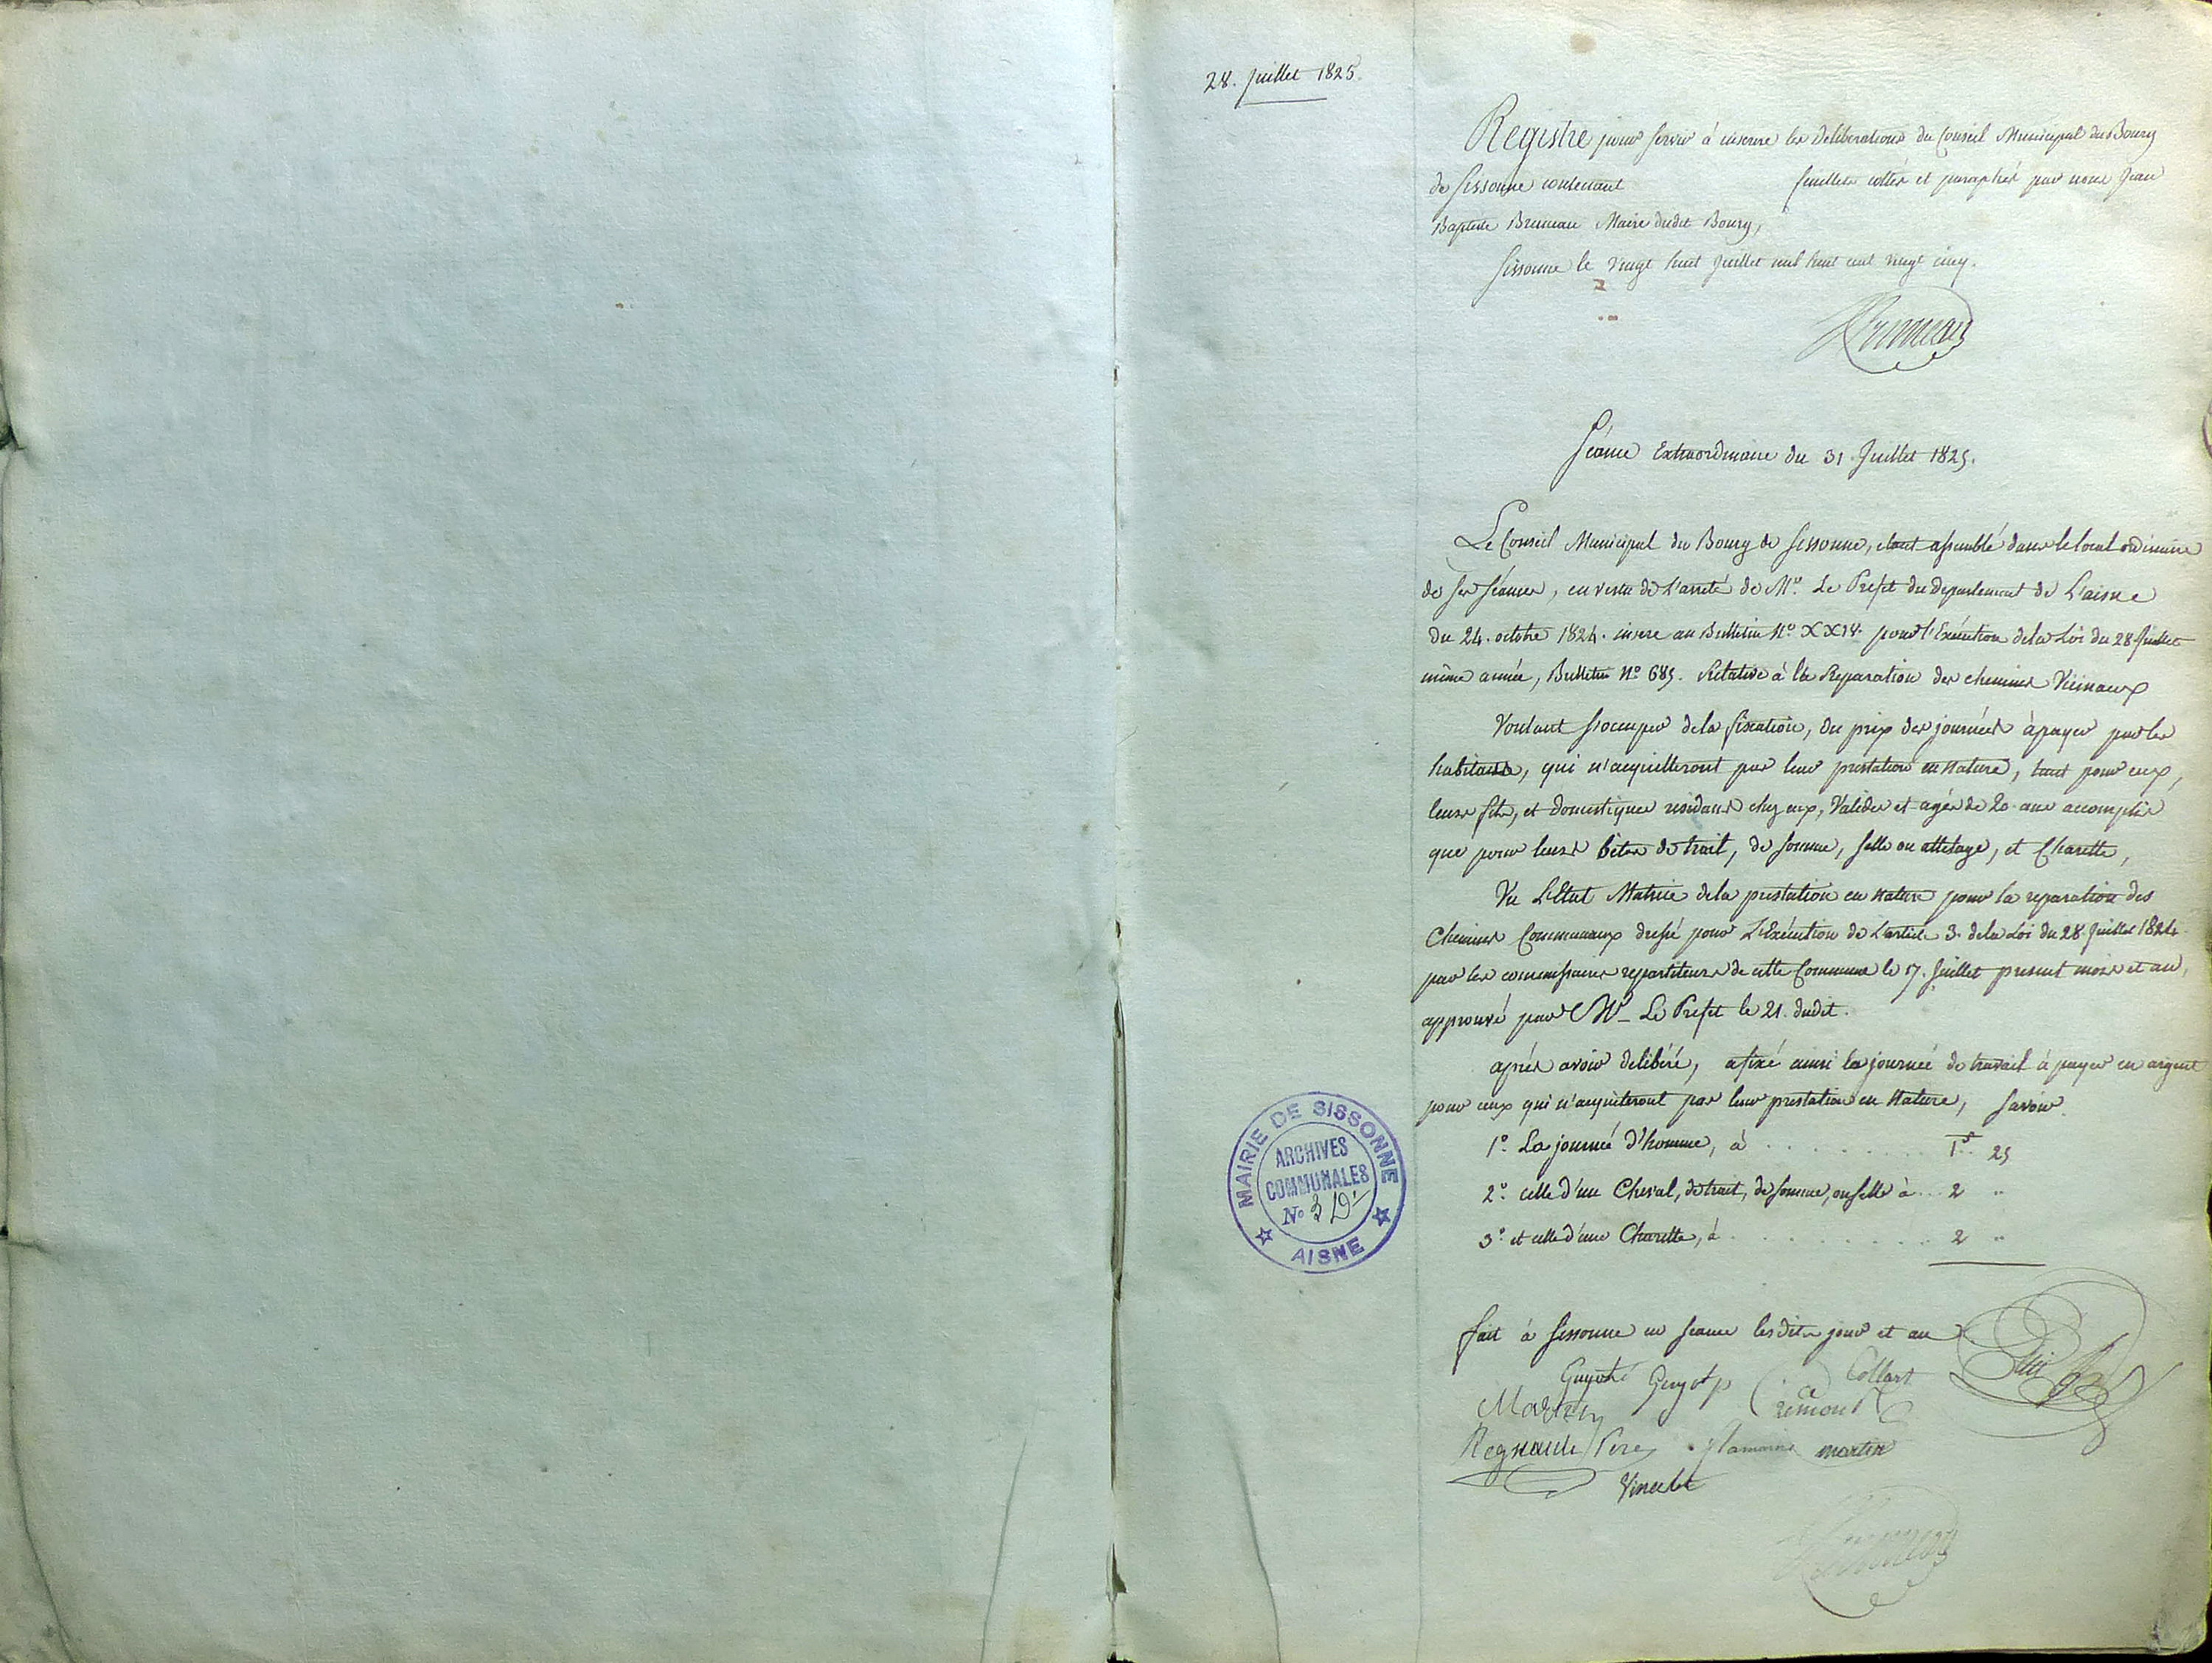 28. Juillet 1825.
Registre pour servir à inscrire les Deliberations du Conseil Municipal du Bourg
de Sissonne contenant feuillets cottés et paraphés par nous Jean
Baptiste Bruneau Maire dudit Bourg,
Sissonne le vingt huit Juillet mil huit cent vingt cinq.
Bruneau
Séance Extraordinaire du 31 Juillet 1825.
Le Conseil Municipal du Bourg de Sissonne, étant assemblé dans le local ordinaire
de ses séances, en vertu de l'arreté de Mr. Le Prefet du Departement de L'aisne
du 24. octobre 1824. inseré au Bulletin No. XXIV. pour l'Exécution de la Loi du 28 Juillet
même année, Bulletin No 685. Relative à la Reparation des chemins Vicinaux
Voulant s'occuper de la fixation, du prix des journées à payer par les
habitants, qui n'acquitteront pas leur prestation en Nature, tant pour eux,
leurs fils, et domestiques résidans chez eux, Valides et agés de 20 ans accomplis
que pour leurs bêtes de trait, de somme, selle ou attelage, et Charette,
Vu L'Etat Matrice de la prestation en Nature pour la reparation des
Chemins Communaux dressé pour L'Exécution de L'article 3. de la Loi du 28 Juillet 1824.
par les commissaires repartiteurs de cette Commune le 17. Juillet present mois et an,
approuvé par Mr Le Prefet le 21. dudit.
après avoir delibéré, a fixé ainsi la journée de travail à payer en argent
pour ceux qui n'acquiteront pas leur prestation en Nature, Savoir.
1o. La journée d'homme, à . . . . . . . 1f. 25
2o. celle d'un Cheval, de trait, de somme, ou selle à .. 2 "
3o. et celle d'une Charette, à . . . . . . . . 2 "
MAIRIE DE SISSONNE
ARCHIVES
COMMUNALES
No 3 D1
AISNE
fait à Sissonne en seance lesdits jour et an
Guyot Collart
Martin Cremont
Regnault Pere martin
Bruneau